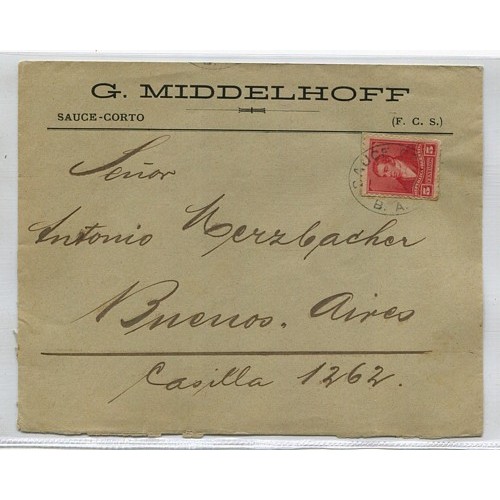 G. MIDDELHOFF
SAUCE-CORTO (F. C. S.)
SAUCE
B. A.
Señor
Antonio Merzbacher
Buenos. Aires
Casilla 1262.